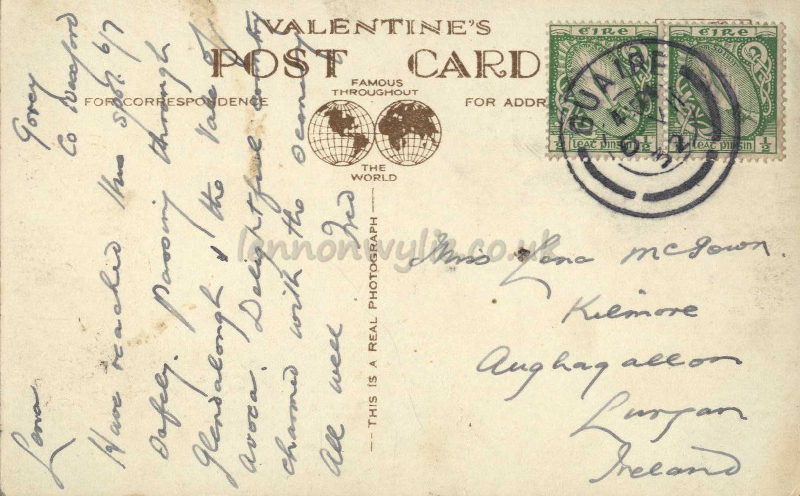 VALENTINE'S
POST CARD
FAMOUS
THROUGHOUT
THE
WORLD
FOR CORRESPONDENCE
FOR ADDR
THIS IS A REAL PHOTOGRAPH
ÉIRE
ÉIRE
½ LEAT PINGIN ½
LEAT PINGIN ½
GUAIRE
Gorey
Co Wexford
Lena
Have reached this spot 6/7
safely. Passing through
Glendalough & the Vale of
Avoca. Delightful country
charmed with the scenery
All well
Miss Lena McGown.
Kilmore
Aughagallon
Lurgan
Ireland
lennonwylie.co.uk